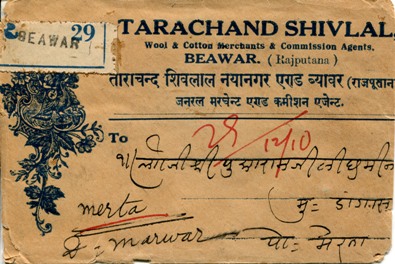 29
BEAWAR
TARACHAND SHIVLAL,
Wool & Cotton Merchants & Commission Agents.
BEAWAR. (Rajputana)
ताराचन्द शिवलाल नयानगर एण्ड ब्यावर (राजपूताना
जनरल मरचेन्ट एण्ड कमीशन एजेन्ट.
To
12/10
merta
marwar
मु= डांगास
पो= मेरता